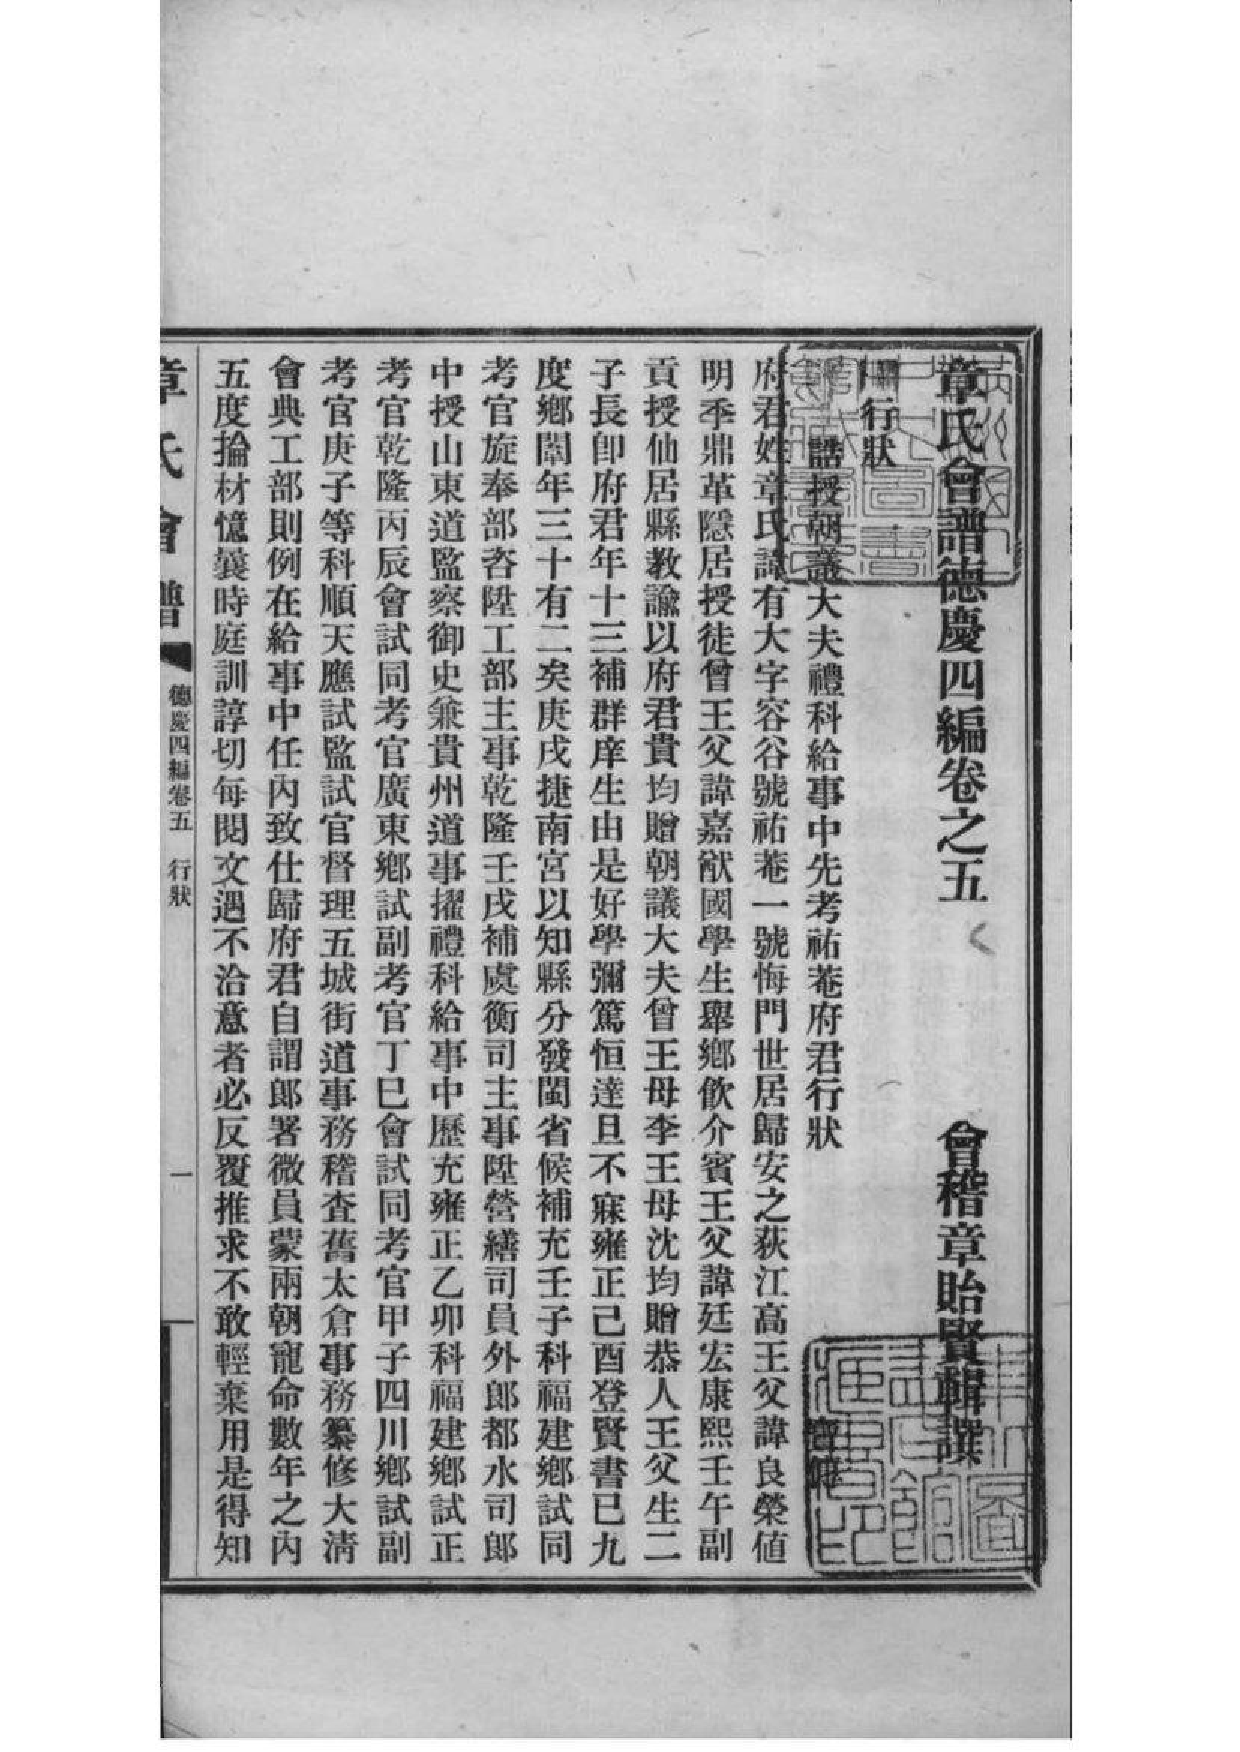 章氏會譜德慶四編卷之五　會稽章貽賢輯譔
行狀
誥授朝議大夫禮科給事中先考祐菴府君行狀　寶傳
府君姓章氏諱有大字容谷號祐菴一號悔門世居歸安之荻江高王父諱良榮値
明季鼎革隱居授徒曾王父諱嘉猷國學生舉鄉飮介賓王父諱廷宏康熙壬午副
貢授仙居縣教諭以府君貴均贈朝議大夫曾王母李王母沈均贈恭人王父生二
子長卽府君年十三補群庠生由是好學彌篤恒達旦不寐雍正己酉登賢書已九
度鄉闈年三十有二矣庚戌捷南宮以知縣分發閩省候補充壬子科福建鄉試同
考官旋奉部咨陞工部主事乾隆壬戌補虞衡司主事陞營繕司員外郎都水司郎
中授山東道監察御史兼貴州道事擢禮科給事中歷充雍正乙卯科福建鄉試正
考官乾隆丙辰會試同考官廣東鄉試副考官丁巳會試同考官甲子四川鄉試副
考官庚子等科順天應試監試官督理五城街道事務稽查舊太倉事務纂修大淸
會典工部則例在給事中任內致仕歸府君自謂郎署微員蒙兩朝寵命數年之內
五度掄材憶曩時庭訓諄切每閱文遇不洽意者必反覆推求不敢輕棄用是得知
章氏會譜　德慶四編卷五　行狀　一